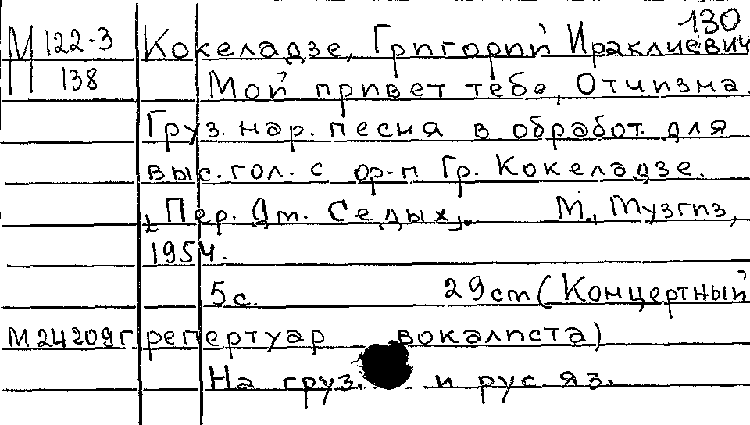 130
М 122-3 Кокеладзе, Григорий Ираклиевич
П 138 Мой привет тебе, Отчизна.
Груз. нар. песня в обработ. для
выс. гол. с ф-п Гр. Кокеладзе.
[Пер. Дм. Седых]. М., Музгиз,
1954.
5с. 29cm (Концертный
М24209г репертуар вокалиста)
На груз. и рус яз.